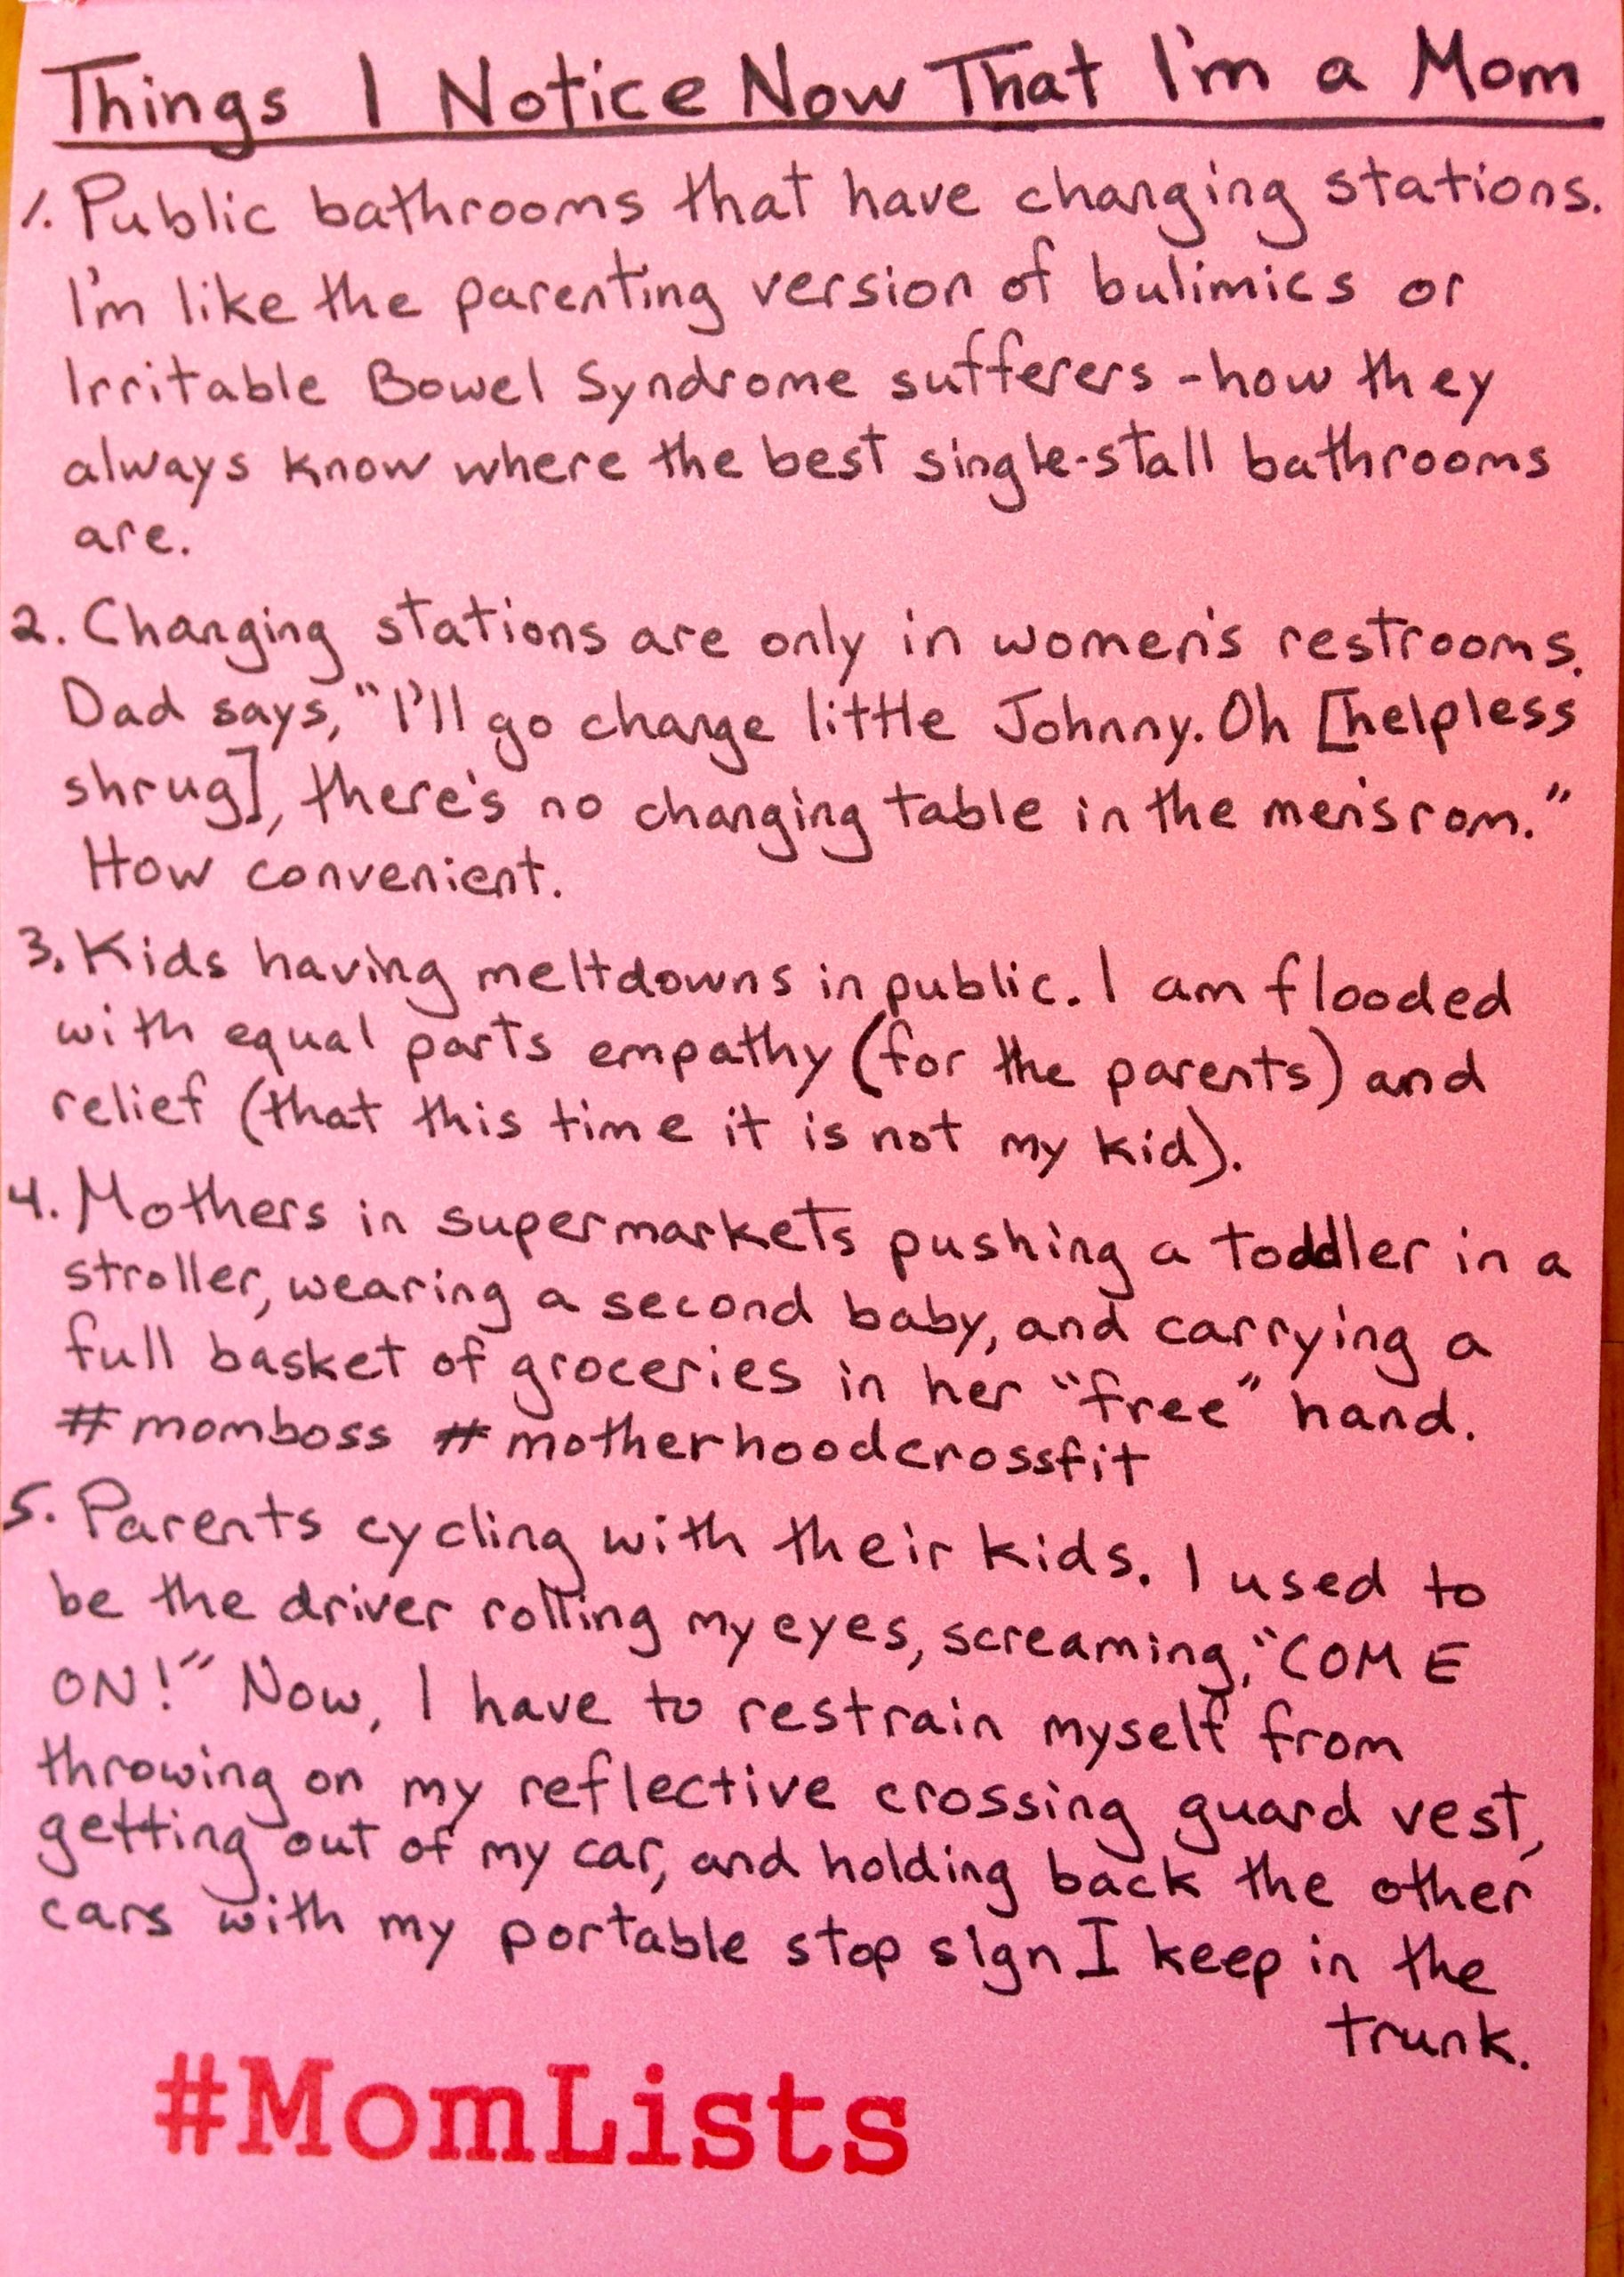 Things I Notice Now That I'm a Mom
1. Public bathrooms that have changing stations.
I'm like the parenting version of bulimics or
Irritable Bowel Syndrome sufferers - how they
always know where the best single-stall bathrooms
are.
2. Changing stations are only in women's restrooms.
Dad says, "I'll go change little Johnny. Oh [helpless
shrug], there's no changing table in the men's rom."
How convenient.
3. Kids having meltdowns in public. I am flooded
with equal parts empathy (for the parents) and
relief (that this time it is not my kid).
4. Mothers in supermarkets pushing a toddler in a
stroller, wearing a second baby, and carrying a
full basket of groceries in her "free" hand.
#momboss #motherhoodcrossfit
5. Parents cycling with their kids. I used to
be the driver rolling my eyes, screaming, "COME
ON!" Now, I have to restrain myself from
throwing on my reflective crossing guard vest,
getting out of my car, and holding back the other
cars with my portable stop sign I keep in the
trunk.
#MomLists